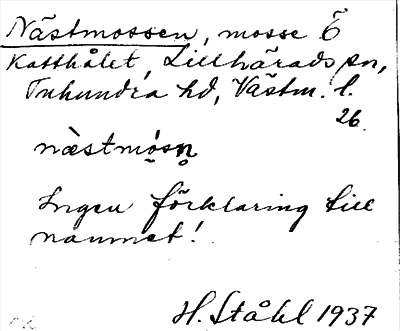 Nästmossen, mosse Ö
Katthålet, Lillhärads sn,
Tuhundra hd, Västm. l.
26.
næ̀stmo̬sn̥
Ingen förklaring till
namnet!
H. Ståhl 1937